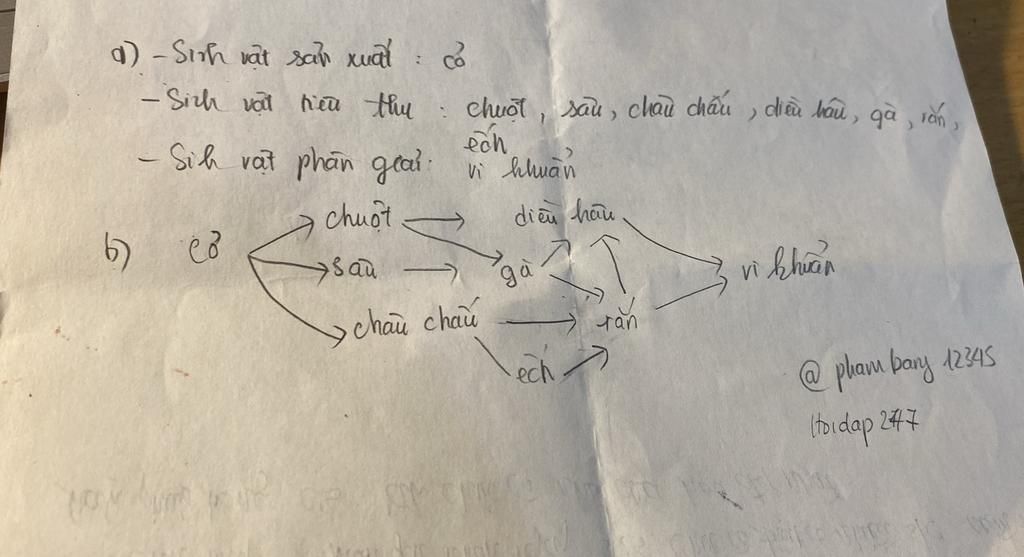 a) - Sinh vật sản xuất : cỏ
- Sinh vật tiêu thụ : chuột, sâu, châu chấu, diều hâu, gà, rắn,
ếch
- Sih vật phân giải: vi khuẩn
b) cỏ → chuột → diều hâu
sâu → gà
vi khuẩn
châu chấu → rắn
ếch
@ phambang 12345
Hoidap 247